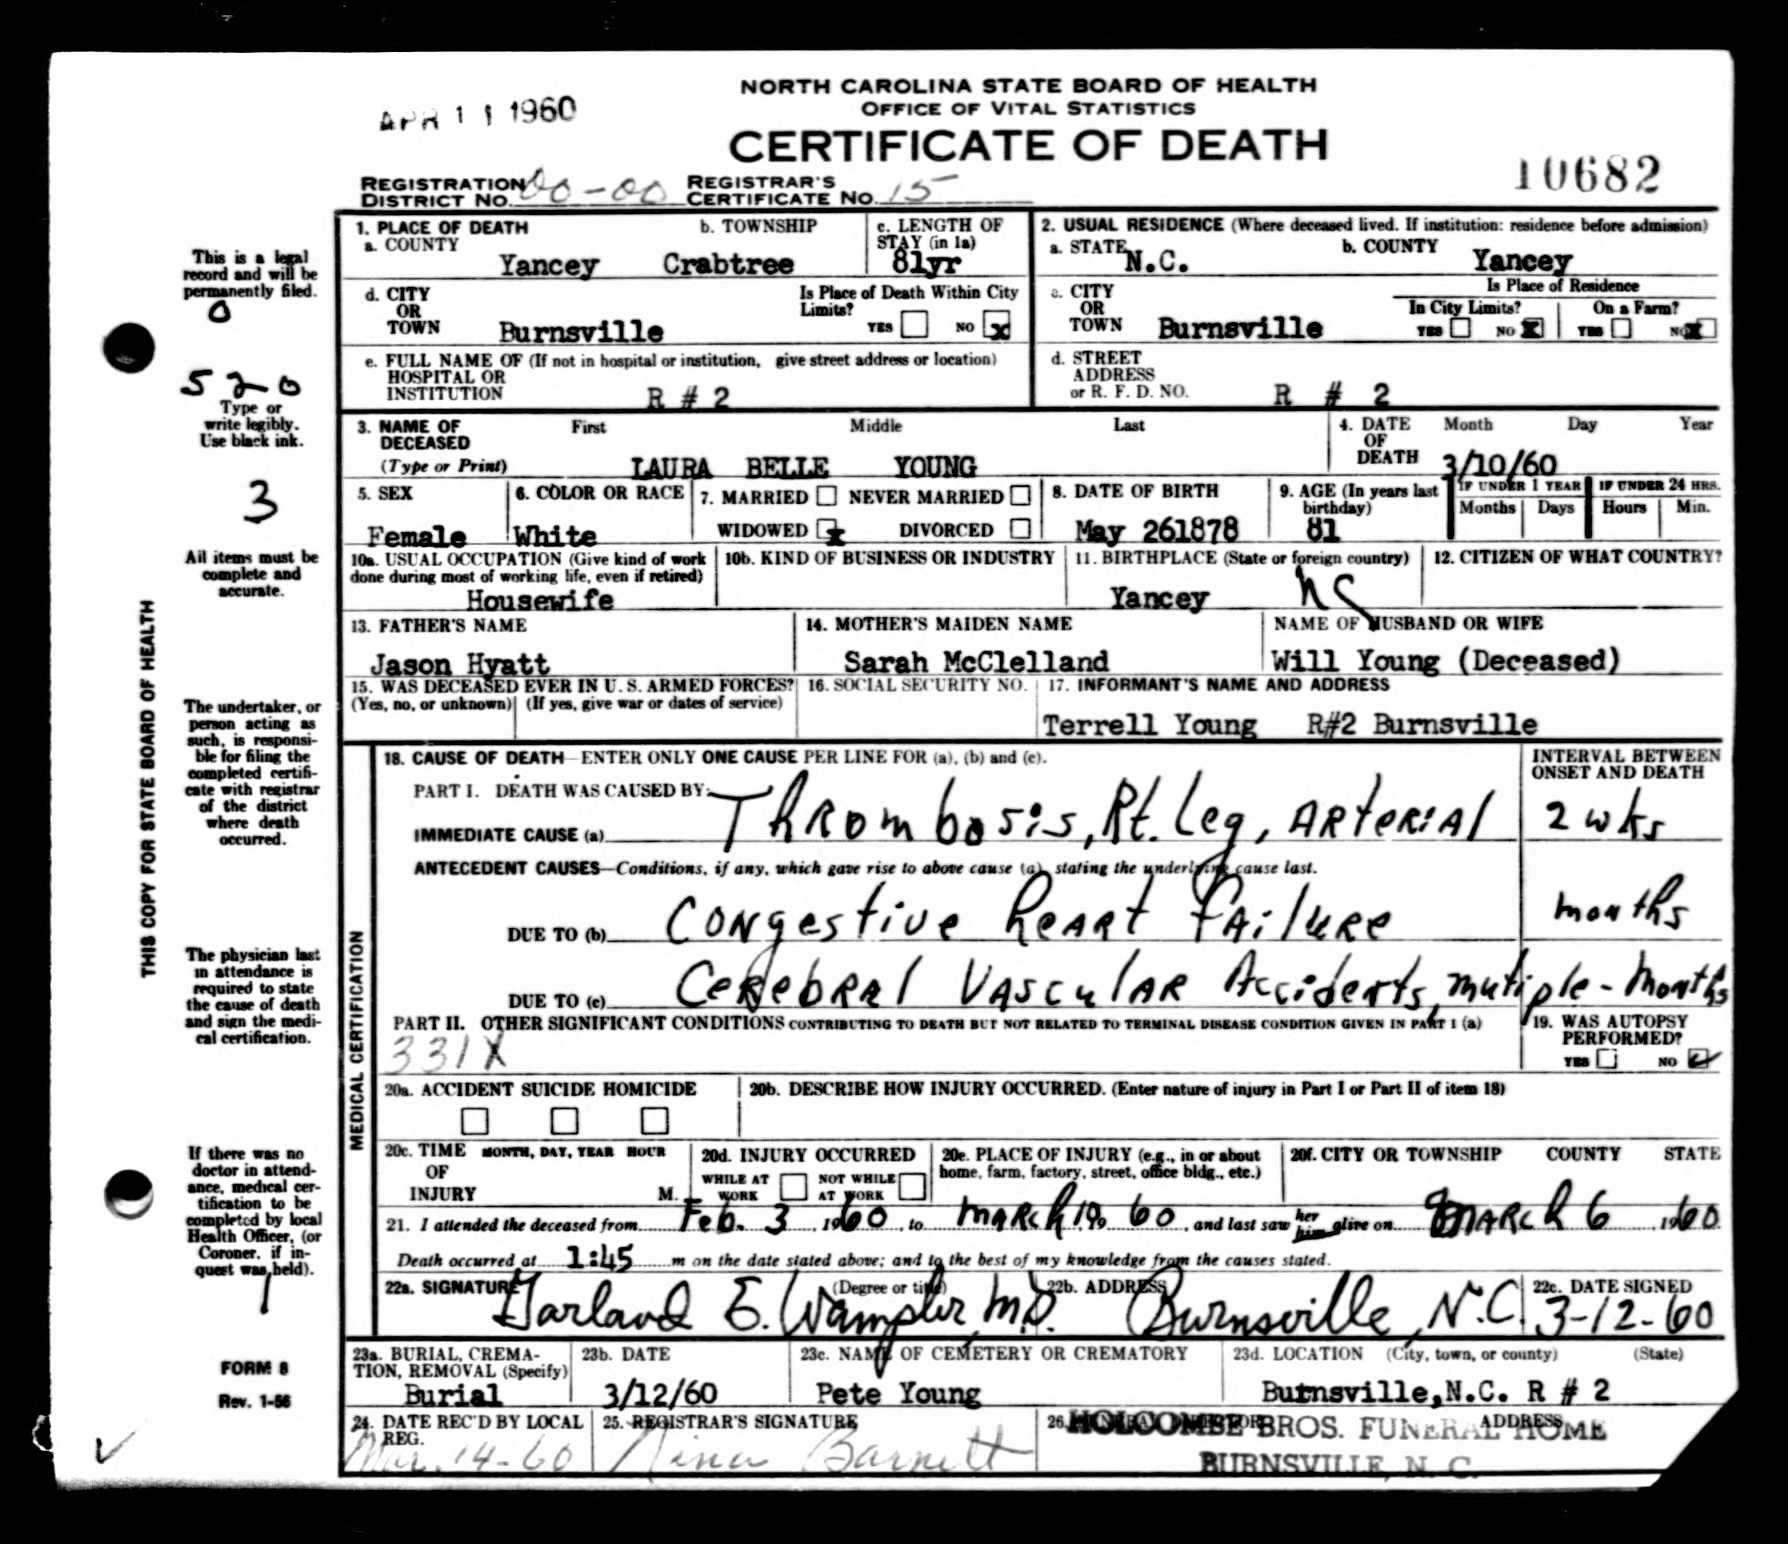 NORTH CAROLINA STATE BOARD OF HEALTH
OFFICE OF VITAL STATISTICS
CERTIFICATE OF DEATH
APR 11 1960
10682
REGISTRATION DISTRICT NO. 00-00 REGISTRAR'S CERTIFICATE NO. 15
This is a legal record and will be permanently filed.
0
520
Type or write legibly. Use black ink.
3
All items must be complete and accurate.
THIS COPY FOR STATE BOARD OF HEALTH
The undertaker, or person acting as such, is responsible for filing the completed certificate with registrar of the district where death occurred.
The physician last in attendance is required to state the cause of death and sign the medical certification.
If there was no doctor in attendance, medical certification to be completed by local Health Officer, (or Coroner, if inquest was held).
1
FORM 8
Rev. 1-56
1. PLACE OF DEATH
a. COUNTY Yancey
b. TOWNSHIP Crabtree
c. LENGTH OF STAY (in 1a) 81yr
2. USUAL RESIDENCE (Where deceased lived. If institution: residence before admission)
a. STATE N.C.
b. COUNTY Yancey
d. CITY OR TOWN Burnsville
Is Place of Death Within City Limits? YES NO x
c. CITY OR TOWN Burnsville
Is Place of Residence
In City Limits? YES NO x On a Farm? YES NO x
e. FULL NAME OF (If not in hospital or institution, give street address or location)
HOSPITAL OR INSTITUTION R # 2
d. STREET ADDRESS or R. F. D. NO. R # 2
3. NAME OF DECEASED (Type or Print) First Middle Last
LAURA BELLE YOUNG
4. DATE OF DEATH Month Day Year
3/10/60
5. SEX Female
6. COLOR OR RACE White
7. MARRIED NEVER MARRIED
WIDOWED x DIVORCED
8. DATE OF BIRTH May 261878
9. AGE (In years last birthday) 81
IF UNDER 1 YEAR Months Days
IF UNDER 24 HRS. Hours Min.
10a. USUAL OCCUPATION (Give kind of work done during most of working life, even if retired)
Housewife
10b. KIND OF BUSINESS OR INDUSTRY
11. BIRTHPLACE (State or foreign country)
Yancey NC
12. CITIZEN OF WHAT COUNTRY?
13. FATHER'S NAME
Jason Hyatt
14. MOTHER'S MAIDEN NAME
Sarah McClelland
NAME OF HUSBAND OR WIFE
Will Young (Deceased)
15. WAS DECEASED EVER IN U. S. ARMED FORCES?
(Yes, no, or unknown) (If yes, give war or dates of service)
16. SOCIAL SECURITY NO.
17. INFORMANT'S NAME AND ADDRESS
Terrell Young R#2 Burnsville
MEDICAL CERTIFICATION
18. CAUSE OF DEATH—ENTER ONLY ONE CAUSE PER LINE FOR (a), (b) and (c).
INTERVAL BETWEEN ONSET AND DEATH
PART I. DEATH WAS CAUSED BY:
IMMEDIATE CAUSE (a) Thrombosis, Rt. Leg, Arterial 2 wks
ANTECEDENT CAUSES—Conditions, if any, which gave rise to above cause (a), stating the underlying cause last.
DUE TO (b) Congestive heart failure months
DUE TO (c) Cerebral Vascular Accidents, mutiple - months
PART II. OTHER SIGNIFICANT CONDITIONS CONTRIBUTING TO DEATH BUT NOT RELATED TO TERMINAL DISEASE CONDITION GIVEN IN PART I (a)
331X
19. WAS AUTOPSY PERFORMED?
YES NO ✓
20a. ACCIDENT SUICIDE HOMICIDE
20b. DESCRIBE HOW INJURY OCCURRED. (Enter nature of injury in Part I or Part II of item 18)
20c. TIME OF INJURY MONTH, DAY, YEAR HOUR M.
20d. INJURY OCCURRED
WHILE AT WORK NOT WHILE AT WORK
20e. PLACE OF INJURY (e.g., in or about home, farm, factory, street, office bldg., etc.)
20f. CITY OR TOWNSHIP COUNTY STATE
21. I attended the deceased from Feb. 3, 1960, to March 19 60, and last saw her him alive on March 6 1960
Death occurred at 1:45 m on the date stated above; and to the best of my knowledge from the causes stated.
22a. SIGNATURE (Degree or title)
Garland E. Wampler, M.D.
22b. ADDRESS
Burnsville, N.C.
22c. DATE SIGNED
3-12-60
23a. BURIAL, CREMATION, REMOVAL (Specify)
Burial
23b. DATE
3/12/60
23c. NAME OF CEMETERY OR CREMATORY
Pete Young
23d. LOCATION (City, town, or county) (State)
Burnsville, N.C. R # 2
24. DATE REC'D BY LOCAL REG.
Mar. 14-60
25. REGISTRAR'S SIGNATURE
Nina Barnett
26. FUNERAL DIRECTOR ADDRESS
HOLCOMBE BROS. FUNERAL HOME
BURNSVILLE, N. C.